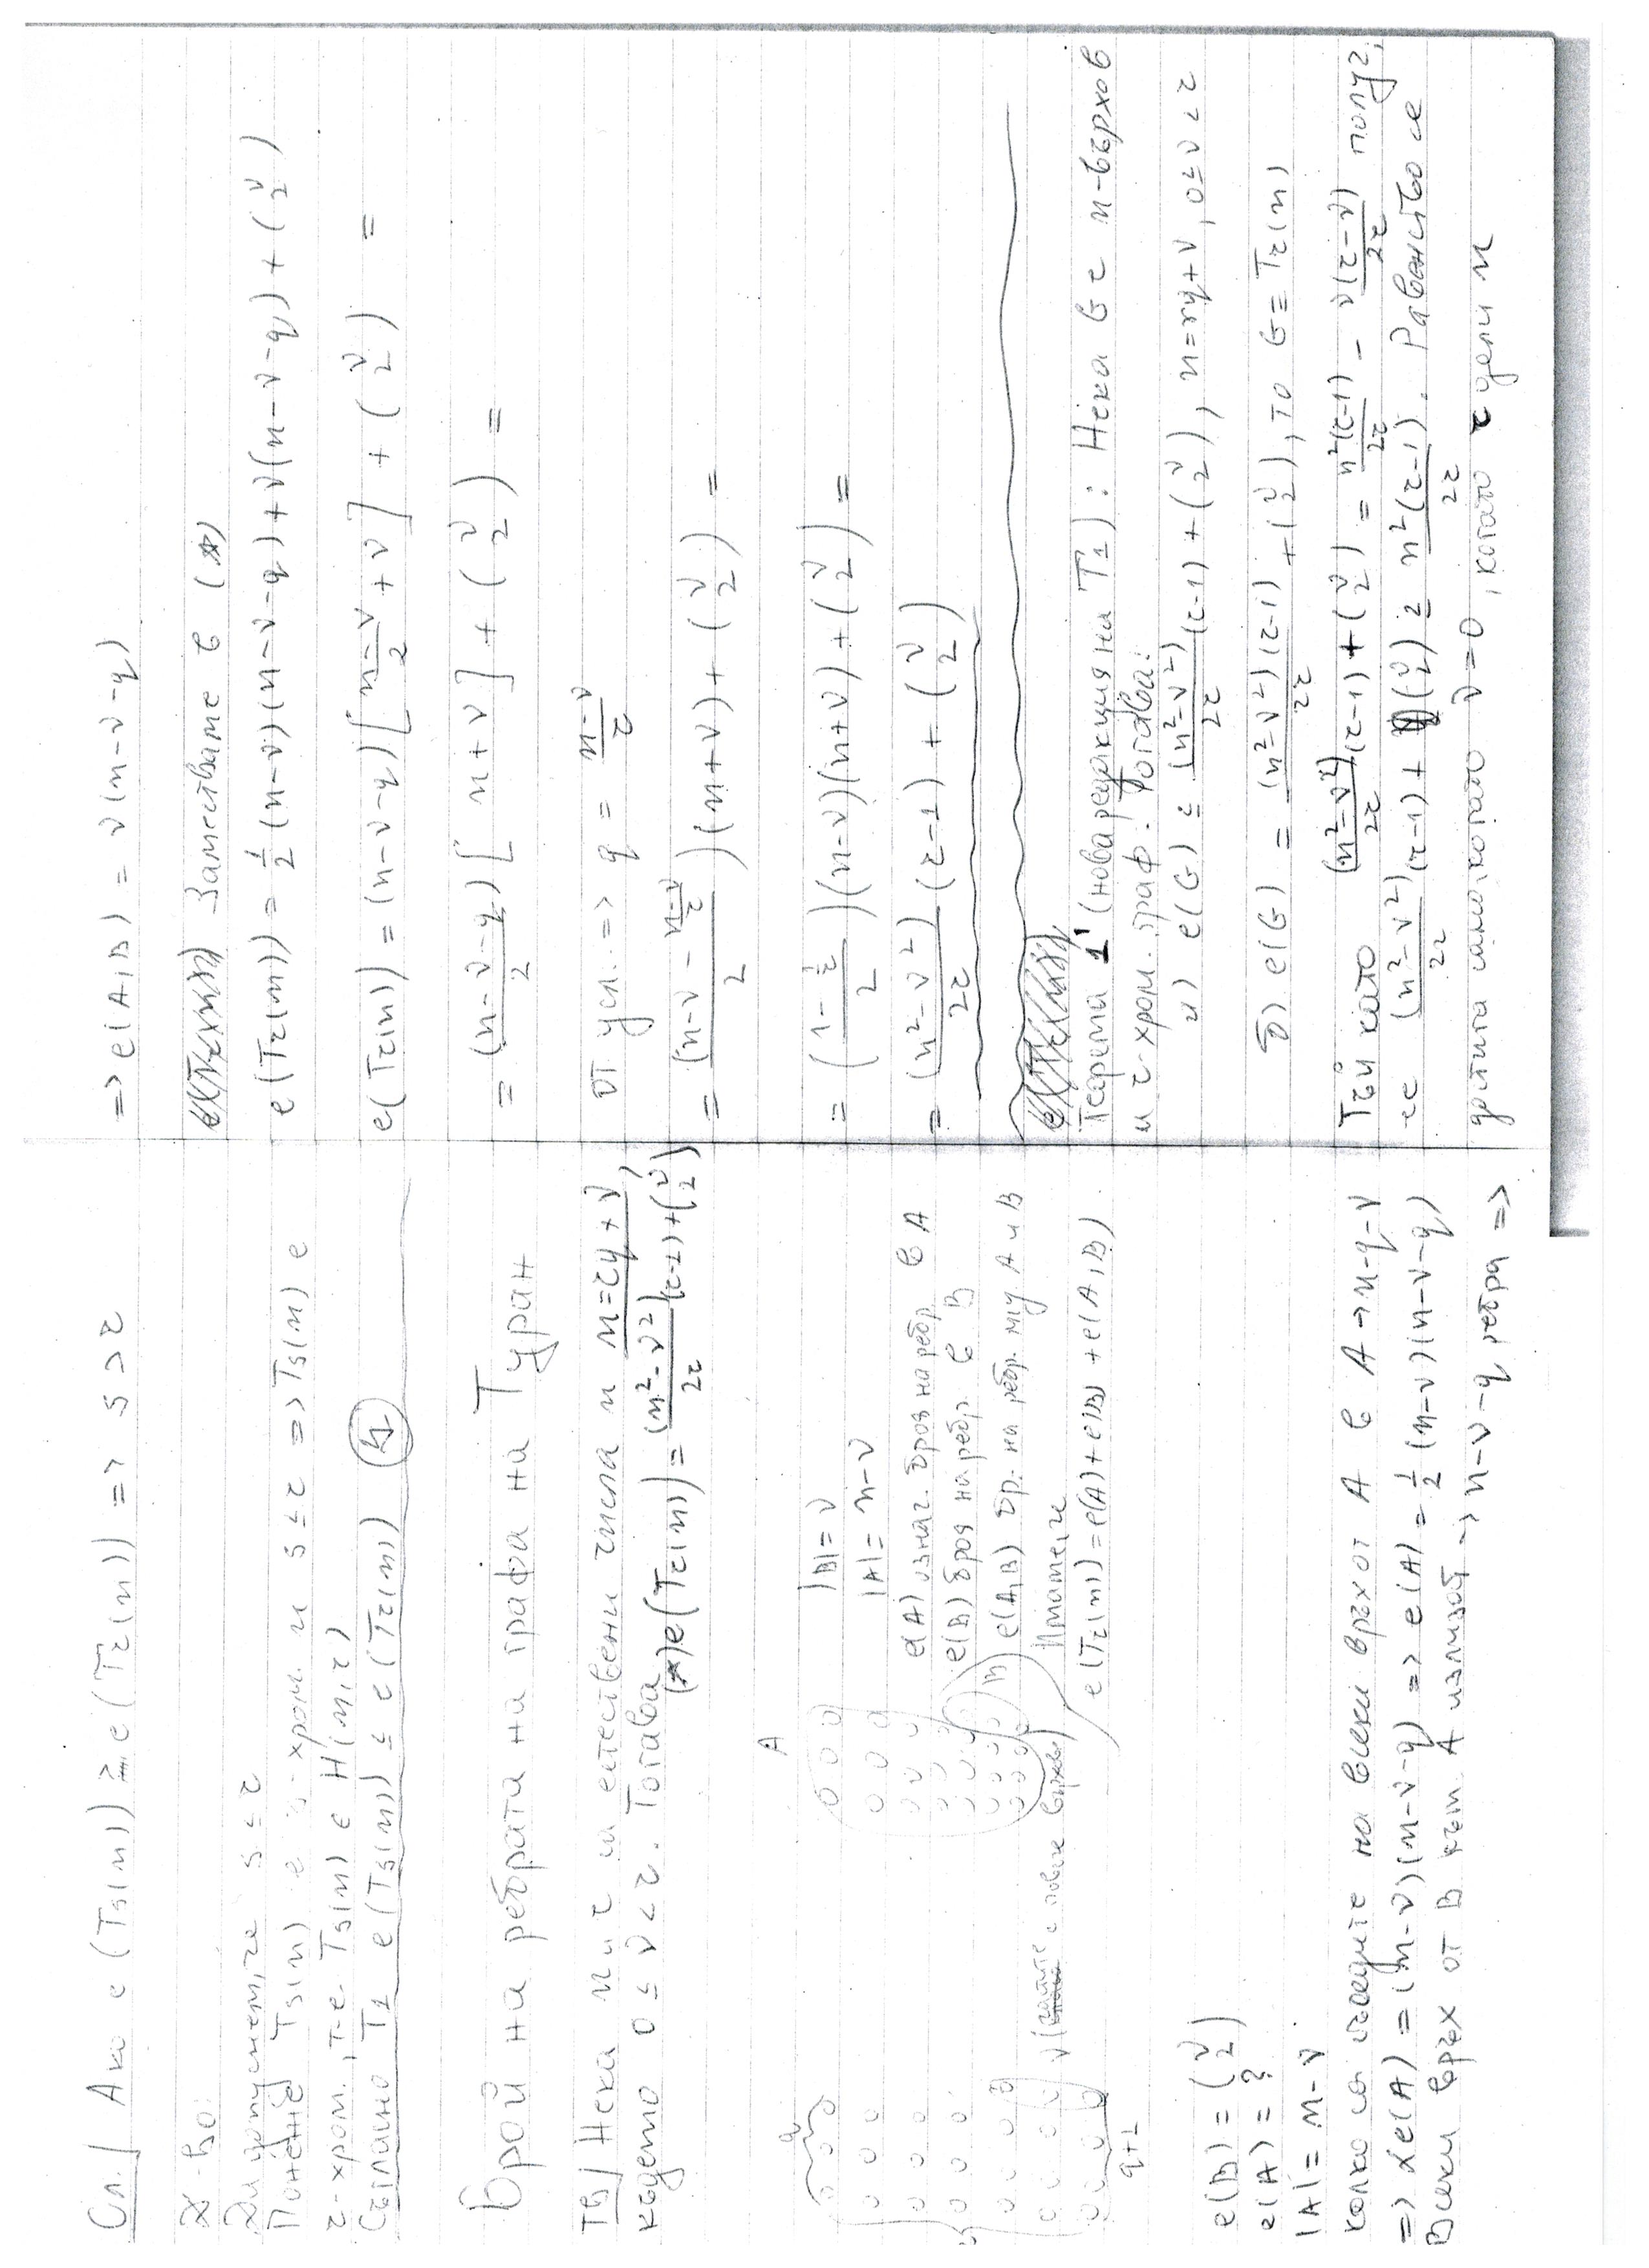 Сл.| Ако e(Ts(n)) ≥ e(Tr(n)) => s > r
Д-во:
Да допуснем, че s ≤ r
Понеже Ts(n) е s-хром. и s ≤ r => Ts(n) е
r-хром., т.е. Ts(n) ∈ H(n,r)
Съгласно T1 e(Ts(n)) ≤ e(Tr(n))
Брой на ребрата на графа на Туран
Тв| Нека n и r са естествени числа и n=rq+ν,
където 0 ≤ ν < r. Тогава
(*) e(Tr(n)) = (n²-ν²)/2r (r-1)+(ν 2)
A
|B|=ν
|A|=n-ν
e(A) означ. броя на ребр. в A
e(B) броя на ребр. в B
e(A,B) бр. на ребр. м/у A и B
Имаме, че
e(Tr(n))=e(A)+e(B)+e(A,B)
q
B
q+1
e(B) = (ν 2)
e(A) = ?
|A| = n-ν
колко са съседите на всеки връх от A в A → n-q-ν
=> 2e(A) = (n-ν)(n-ν-q) => e(A) = 1/2 (n-ν)(n-ν-q)
Всеки връх от B към A излизат → n-ν-q ребра =>
=> e(A,B) = ν(n-ν-q)
Заместваме в (*)
e(Tr(n)) = 1/2 (n-ν)(n-ν-q)+ν(n-ν-q)+(ν 2)
e(Tr(n)) = (n-ν-q)[(n-ν)/2 + ν] + (ν 2) =
= (n-ν-q)/2 [n+ν] + (ν 2) =
от усл. => q = (n-ν)/r
= (n-ν - (n-ν)/r)/2 (n+ν) + (ν 2) =
= ((1 - 1/r)/2)(n-ν)(n+ν)+(ν 2) =
= (n²-ν²)/2r (r-1) + (ν 2)
Теорема 1' (нова редакция на T1): Нека G е n-върхов
и r-хром. граф. Тогава:
а) e(G) ≤ (n²-ν²)/2r (r-1) + (ν 2), n=rq+ν, 0≤ν<r
б) e(G) = (n²-ν²)(r-1)/2r + (ν 2), то G ≡ Tr(n)
Тъй като (n²-ν²)/2r (r-1) + (ν 2) = n²(r-1)/2r - ν(r-ν)/2r получ.
се (n²-ν²)/2r (r-1) + (ν 2) ≤ n²(r-1)/2r. Равенство се
достига само, когато ν=0, когато r дели n